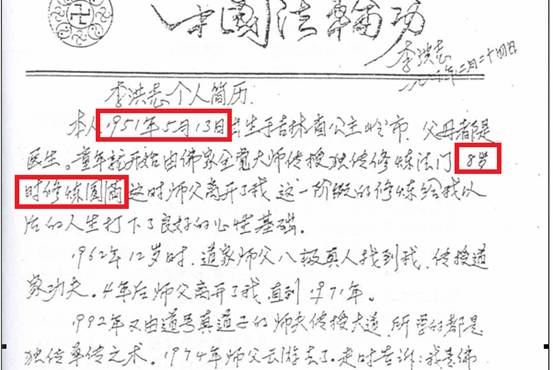 中國法輪功
李洪志
年二月二十四日
李洪志个人简历.
本人1951年5月13日出生于吉林省公主岭市，父母都是
医生。童年就开始由佛家全觉大师传授独传修炼法门，8岁
时修炼圆满 这时师父离开了我，这一阶段的修炼给我以
后的人生打下了良好的心性基础。
1962年12岁时，道家师父八极真人找到我，传授道
家功夫。4年后师父离开了我，直到1971年。
1992年又由道号真道子的师夫传授大道，所学的都是
独传单传之术。1974年师父云游去了。走时告诉：我是佛